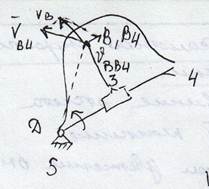 V̄B4
VB
B, B4
VBB4
3
4
D
5